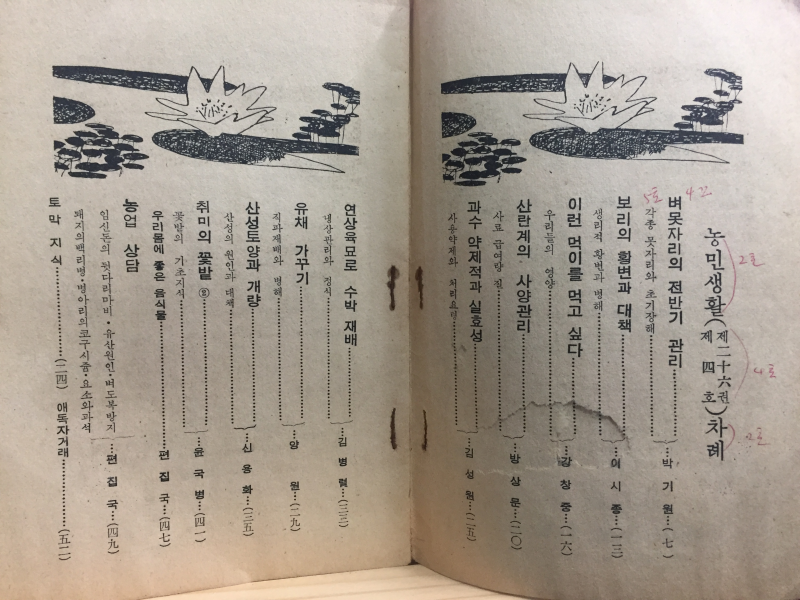 농민생활 (제二十六권 제四호) 차례
2호
4호
2호
5호 4호
벼못자리의 전반기 관리
각종 못자리와 초기장해 … 박기원…(七)
보리의 황변과 대책
생리적 황변과 병해 … 이시종…(一三)
이런 먹이를 먹고 싶다
우리들의 영양 … 강창중…(一六)
산란계의 사양관리
사료 급여량 질 … 방상문…(二〇)
과수 약제적과 실효성
사용약제와 처리요령 … 김성원…(二五)
연상육묘로 수박 재배
냉상관리와 정식 … 김병렬…
유채 가꾸기
직파재배와 병해 … 양 원…(二九)
산성토양과 개량
산성의 원인과 대책 … 신용화…(三五)
취미의 꽃밭
꽃밭의 기초지식 … 윤국병…(四一)
우리몸에 좋은 음식물 … 편집국…(四七)
농업 상담
임신돈의 뒷다리마비·유산원인·벼도복방지
돼지의백리병·병아리의코구시즘·요소와과석 … 편집국…(四九)
토막 지식 … (二四) 애독자거래 … (五二)